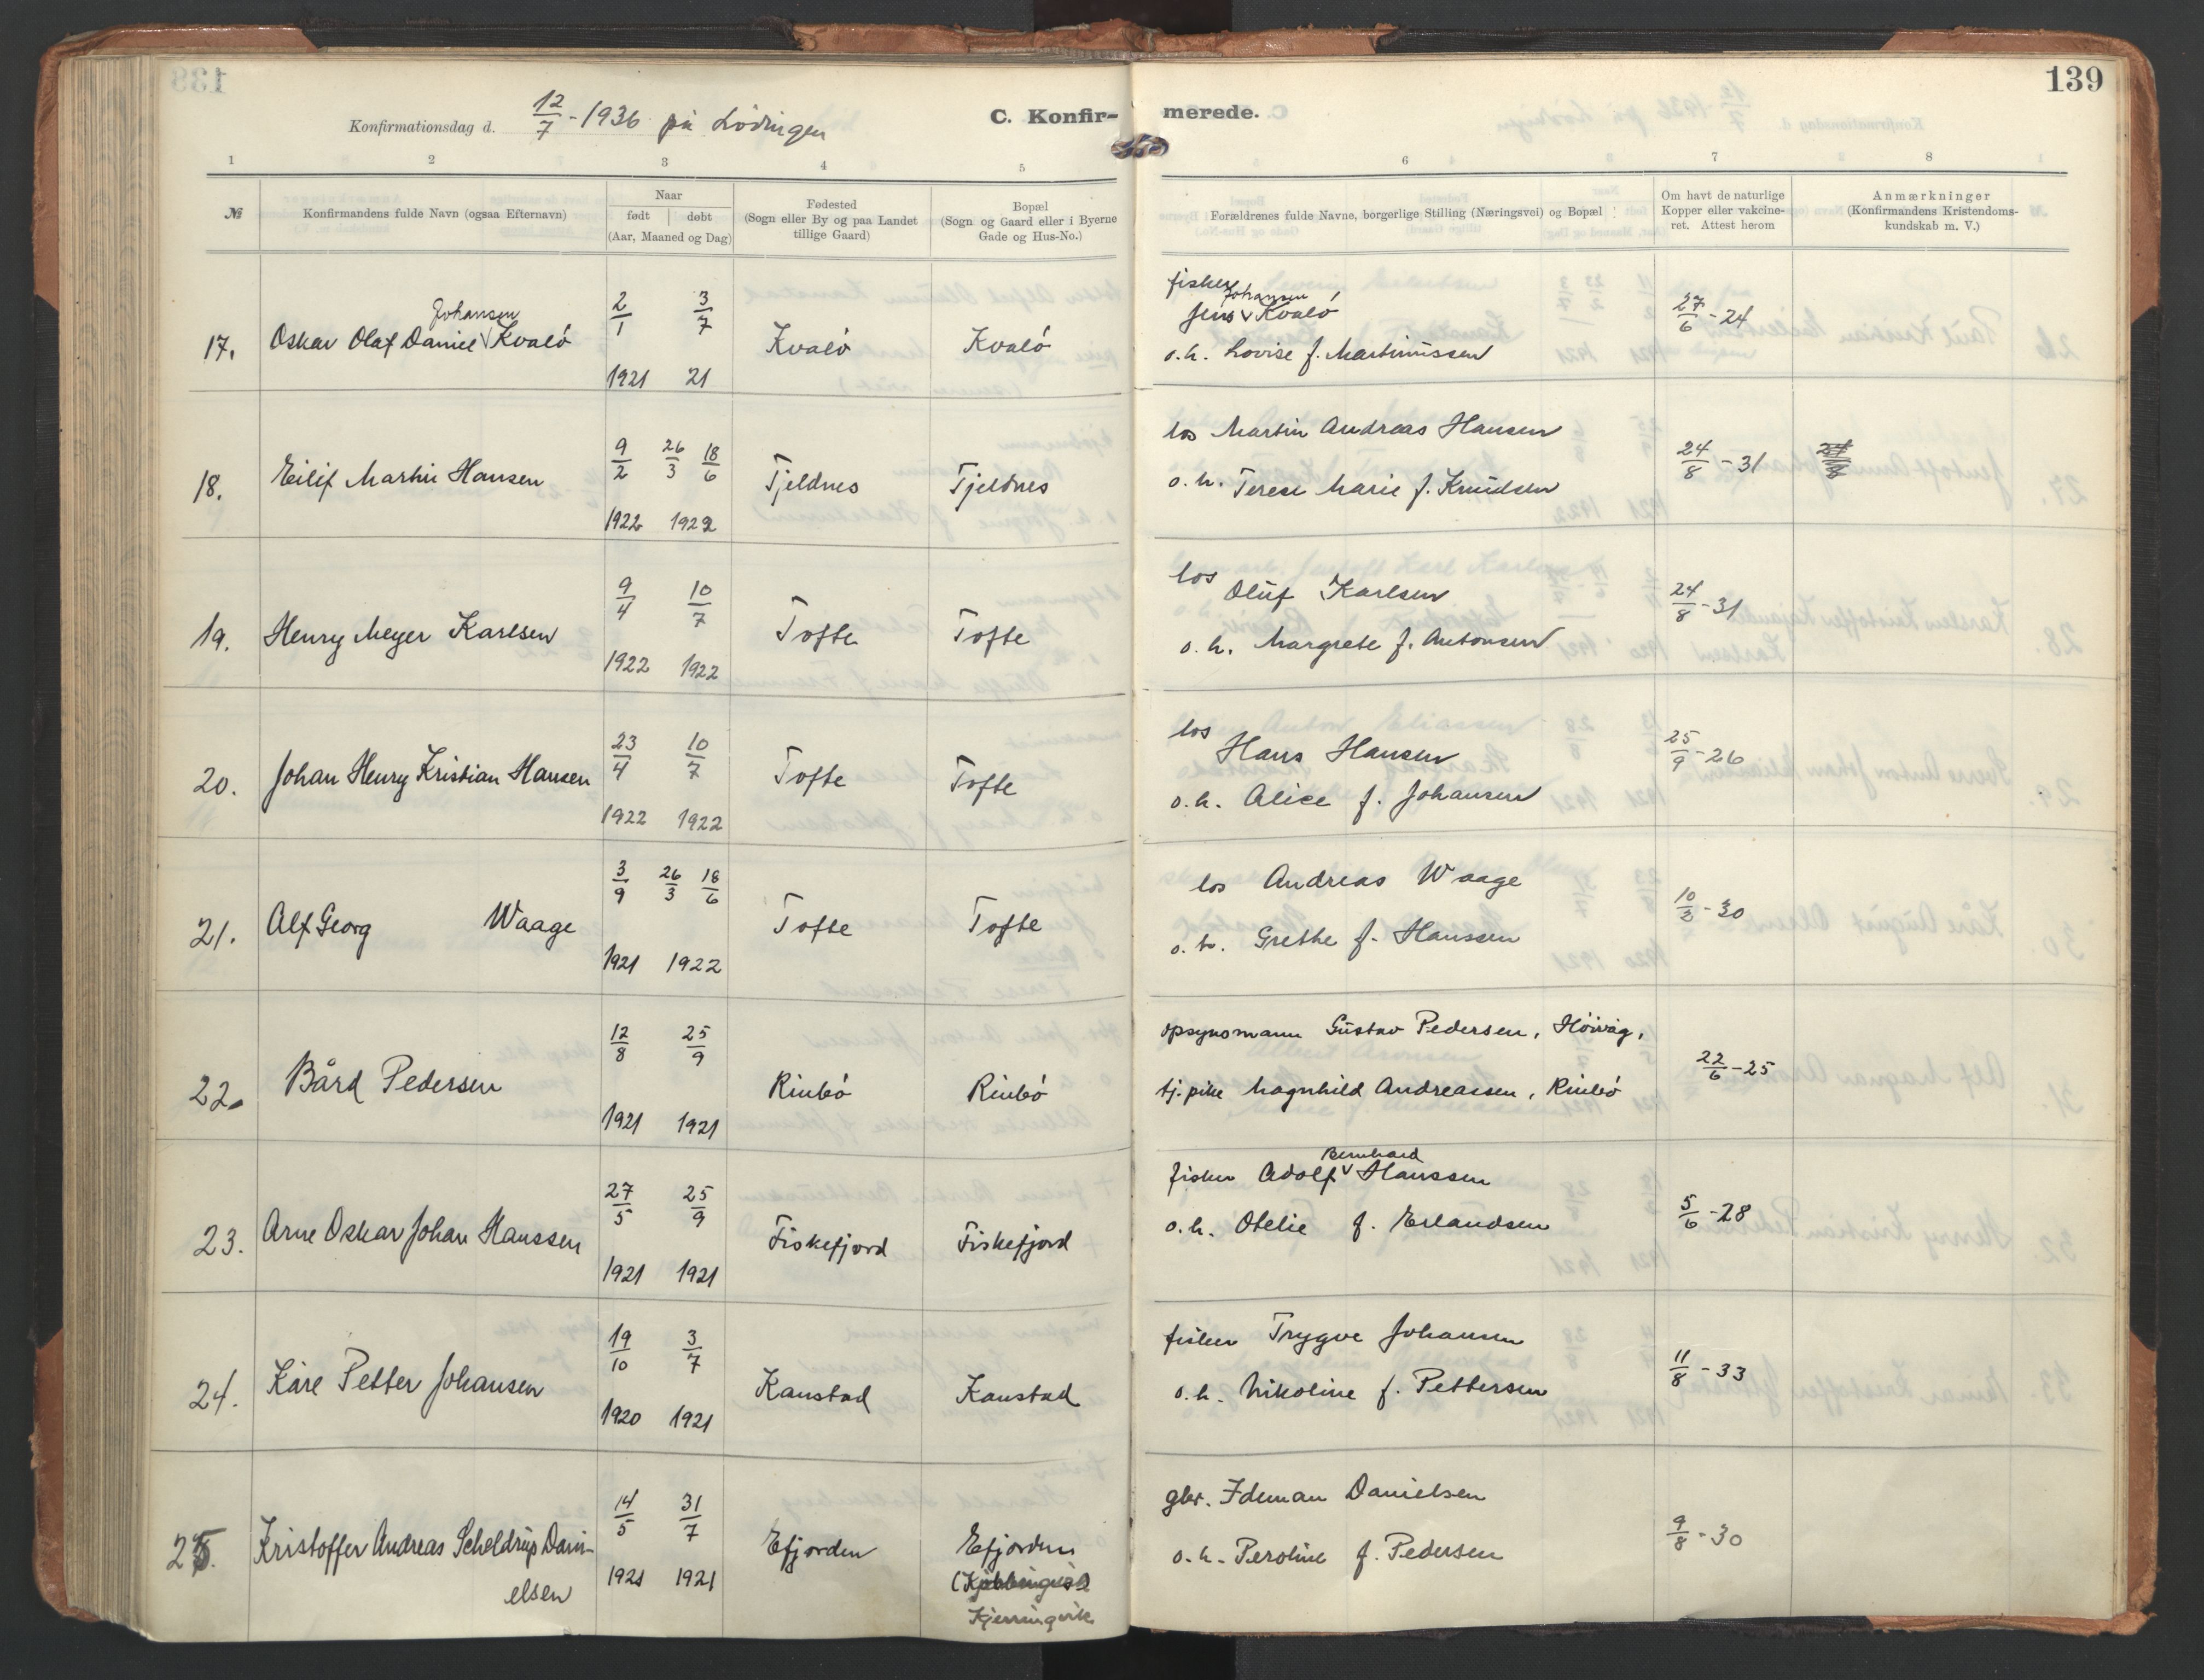 139
Konfirmationsdag d. 12/7 - 1936 på Lödingen
C. Konfir-
merede.
1 2 3 4 5 6 7 8
№
Konfirmandens fulde Navn (ogsaa Efternavn)
Naar
født | døbt
(Aar, Maaned og Dag)
Fødested
(Sogn eller By og paa Landet
tillige Gaard)
Bopæl
(Sogn og Gaard eller i Byerne
Gade og Hus-No.)
Forældrenes fulde Navne, borgerlige Stilling (Næringsvei) og Bopæl
Om havt de naturlige
Kopper eller vakcine-
ret. Attest herom
Anmærkninger
(Konfirmandens Kristendoms-
kundskab m. V.)
17. Oskar Olaf Daniel Johansen Kvalö
2/1 3/7
1921 21
Kvalö Kvalö
fisker
Jens Johansen Kvalö
o. h. Lovise f. Martinussen
27/6 - 24
18. Eilif Martin Hansen
9/2 26/3 18/6
1922 1922
Tjeldnes Tjeldnes
los Martin Andreas Hansen
o. h. Terese Marie f. Knudsen
24/8 - 31
19. Henry Meyer Karlsen
9/4 10/7
1922 1922
Tofte Tofte
los
Oluf Karlsen
o. h. Margrete f. Antonsen
24/8 - 31
20. Johan Henry Kristian Hansen
23/4 10/7
1922 1922
Tofte Tofte
los
Hans Hansen
o. h. Alice f. Johansen
25/9 - 26
21. Alf Georg Waage
3/9 26/3 18/6
1921 1922
Tofte Tofte
los Andreas Waage
o. h. Grethe f. Hanssen
10/3 - 30
22. Bård Pedersen
12/8 25/9
1921 1921
Rinbö Rinbö
opsynsmann Gustav Pedersen, Höivåg,
tj. pike Magnhild Andreassen, Rinbö
22/6 - 25
23. Arne Oskar Johan Hanssen
27/5 25/9
1921 1921
Fiskefjord Fiskefjord
fisker Adolf Bernhard Hanssen
o. h. Otelie f. Erlandsen
5/6 - 28
24. Kåre Petter Johansen
19/10 3/7
1920 1921
Kanstad Kanstad
fisker Trygve Johansen
o. h. Nikoline f. Pettersen
11/8 - 33
25. Kristoffer Andreas Scheldrup Dani-
elsen
14/5 31/7
1921 1921
Efjorden Efjorden
Kjerringvik
gbr. Ideman Danielsen
o. h. Peroline f. Pedersen
9/8 - 30